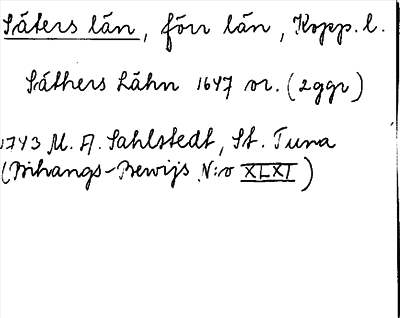 Säters län, förr län, Kopp. l.
Säthers Lähn 1647 or. (2ggr)
1743 M. A. Sahlstedt, St. Tuna
(Bihangs-Bewijs N:o XLXI)